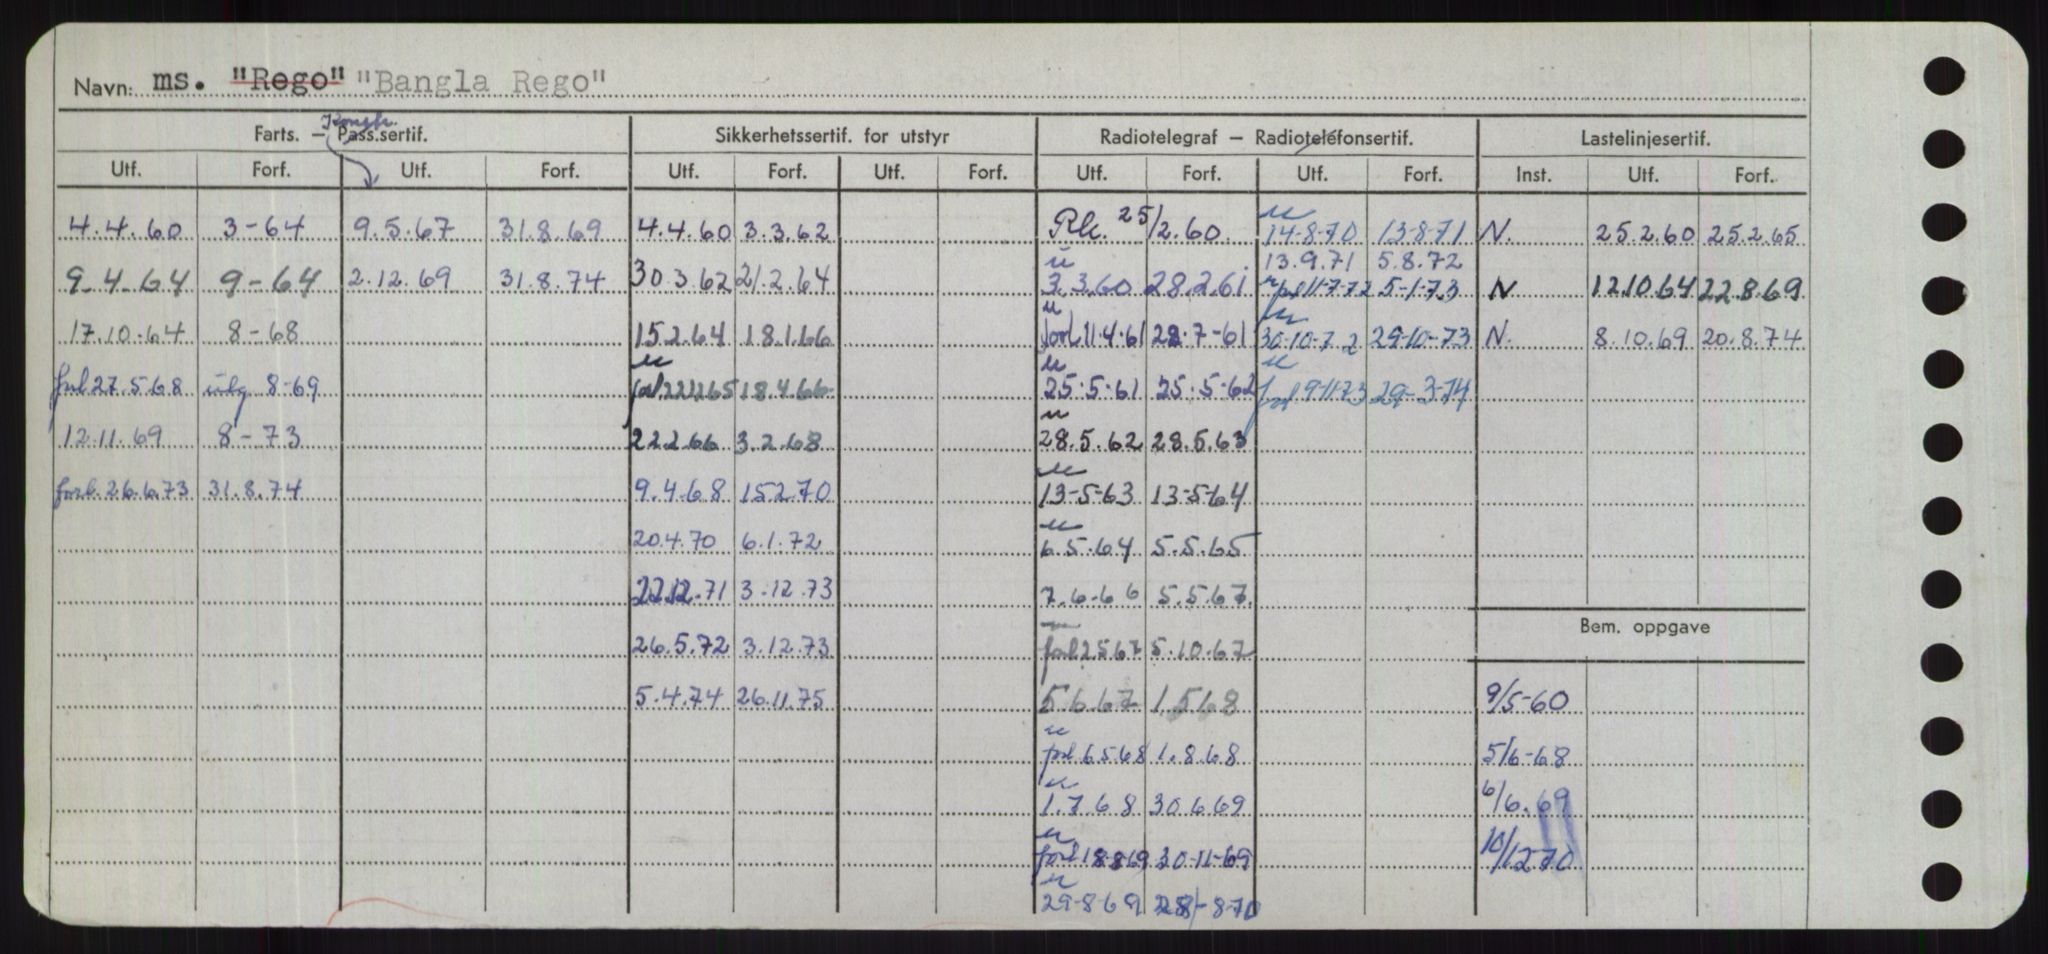 Navn: ms. "Rego" "Bangla Rego"
Farts. — Pass.sertif. Sikkerhetssertif. for utstyr Radiotelegraf — Radiotelefonsertif. Lastelinjesertif.
Utf. Forf. Utf. Forf. Utf. Forf. Utf. Forf. Utf. Forf. Utf. Forf. Inst. Utf. Forf.
4.4.60 3-64 9.5.67 31.8.69 4.4.60 3.3.62 Rk. 25/2.60. 14-8-70 13-8-71 N. 25.2.60 25.2.65
13.9.71 5.8.72
9.4.64 9-64 2.12.69 31.8.74 30.3.62 21.2.64 3.3.60 28.2.61 11-7-72 5-1-73 N 12.10.64 22.8.69
17.10.64 8-68 15.2.64 18.1.66 forl 11.4.61 28.7-61 30-10-72 29-10-73 N. 8.10.69 20.8.74
forl 27.5.68 8-69 forl. 22.12.65 18.4.66 25.5.61 25.5.62 forl 9-11-73 29-3-74
12.11.69 8-73 22.2.66 3.2.68 28.5.62 28.5.63
forl. 26.6.73 31.8.74 9.4.68 15.2.70 13-5-63 13-5-64
20.4.70 6.1.72 6.5.64 5.5.65
22.12.71 3.12.73 7.6.66 5.5.67
Bem. oppgave
26.5.72 3.12.73 forl 2.5.67 5.10.67
5.4.74 26.11.75 5.6.67 1.5.68 9/5-60
forl 6.5.68 1.8.68 5/6-68
1.7.68 30.6.69 6/6.69
forl 18.8.69 30-11-69 10/12 70
29-8-69 28-8-70